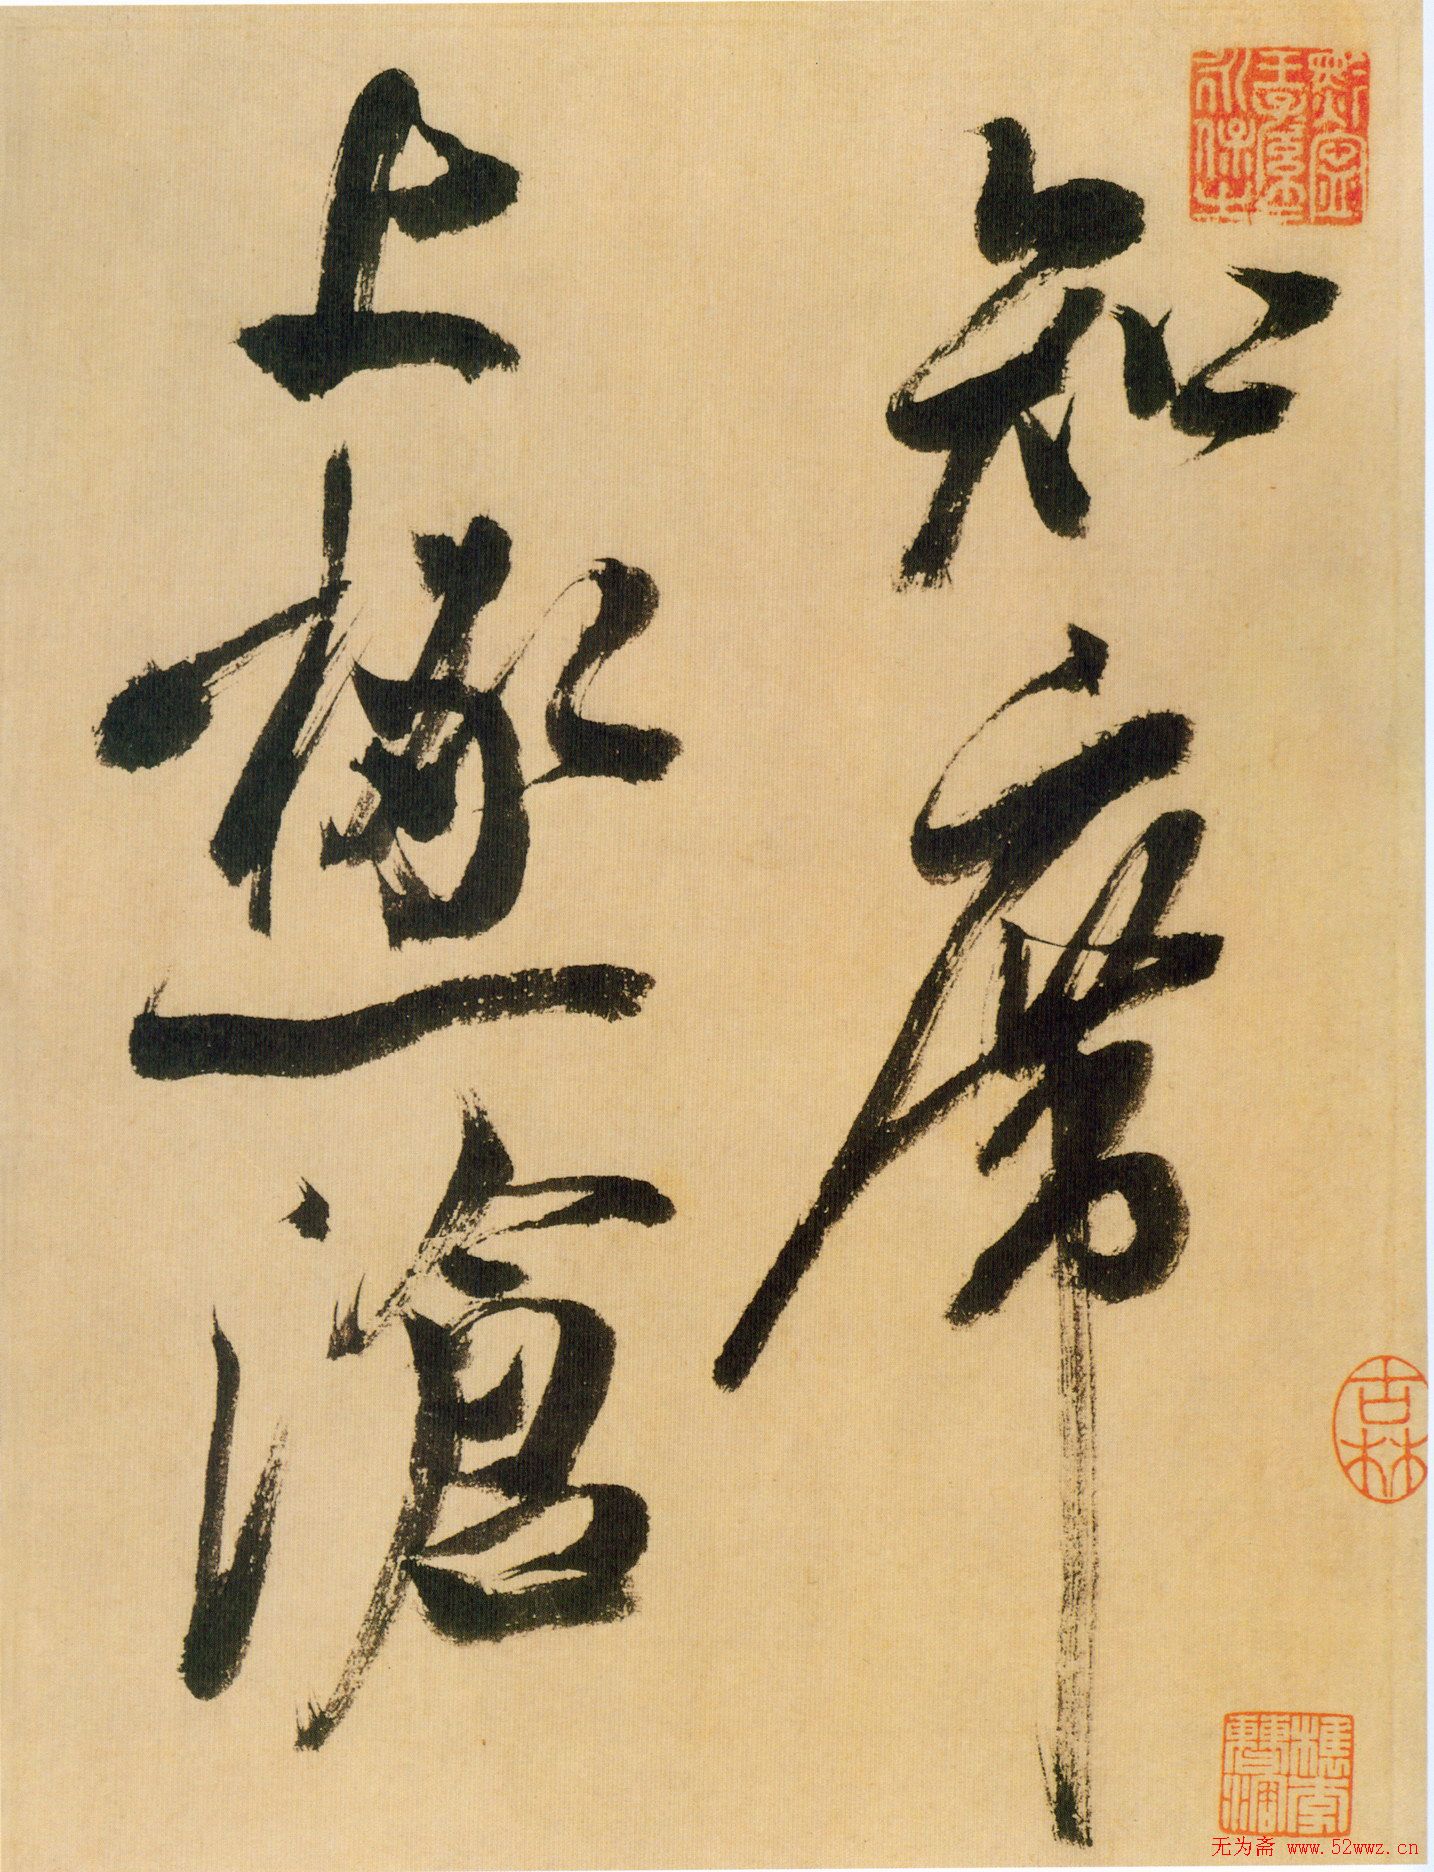 知席
上極滄
古林
无为斋 www.52wwz.cn